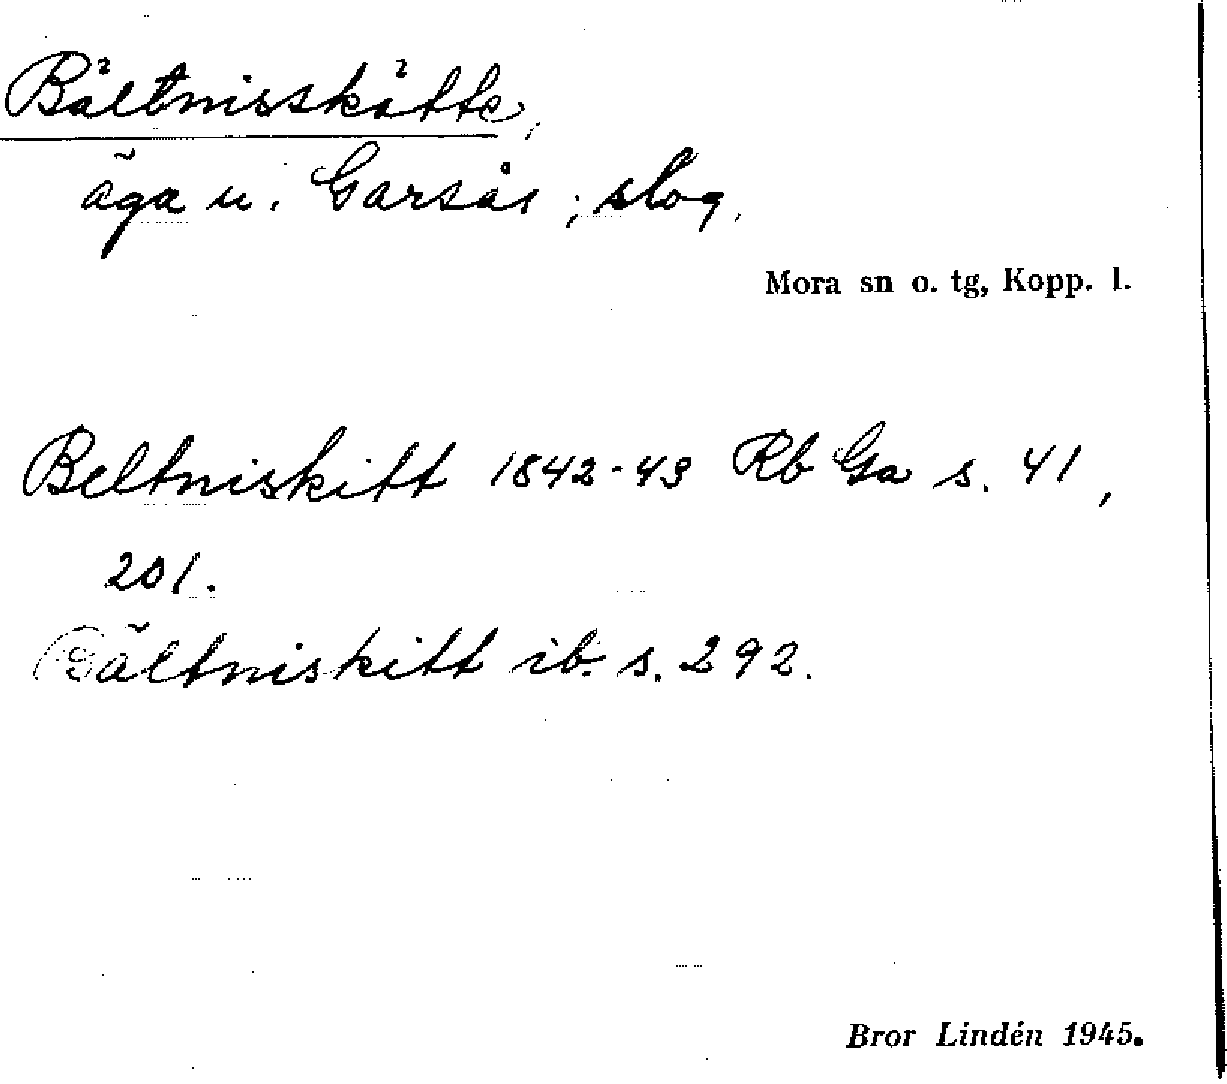 Bältnisskätte,
äga u. Garsås; slog.
Mora sn o. tg, Kopp. l.
Beltniskitt 1842-43 Rb Ga s. 41,
201.
Bältniskitt ib. s. 292.
Bror Lindén 1945.